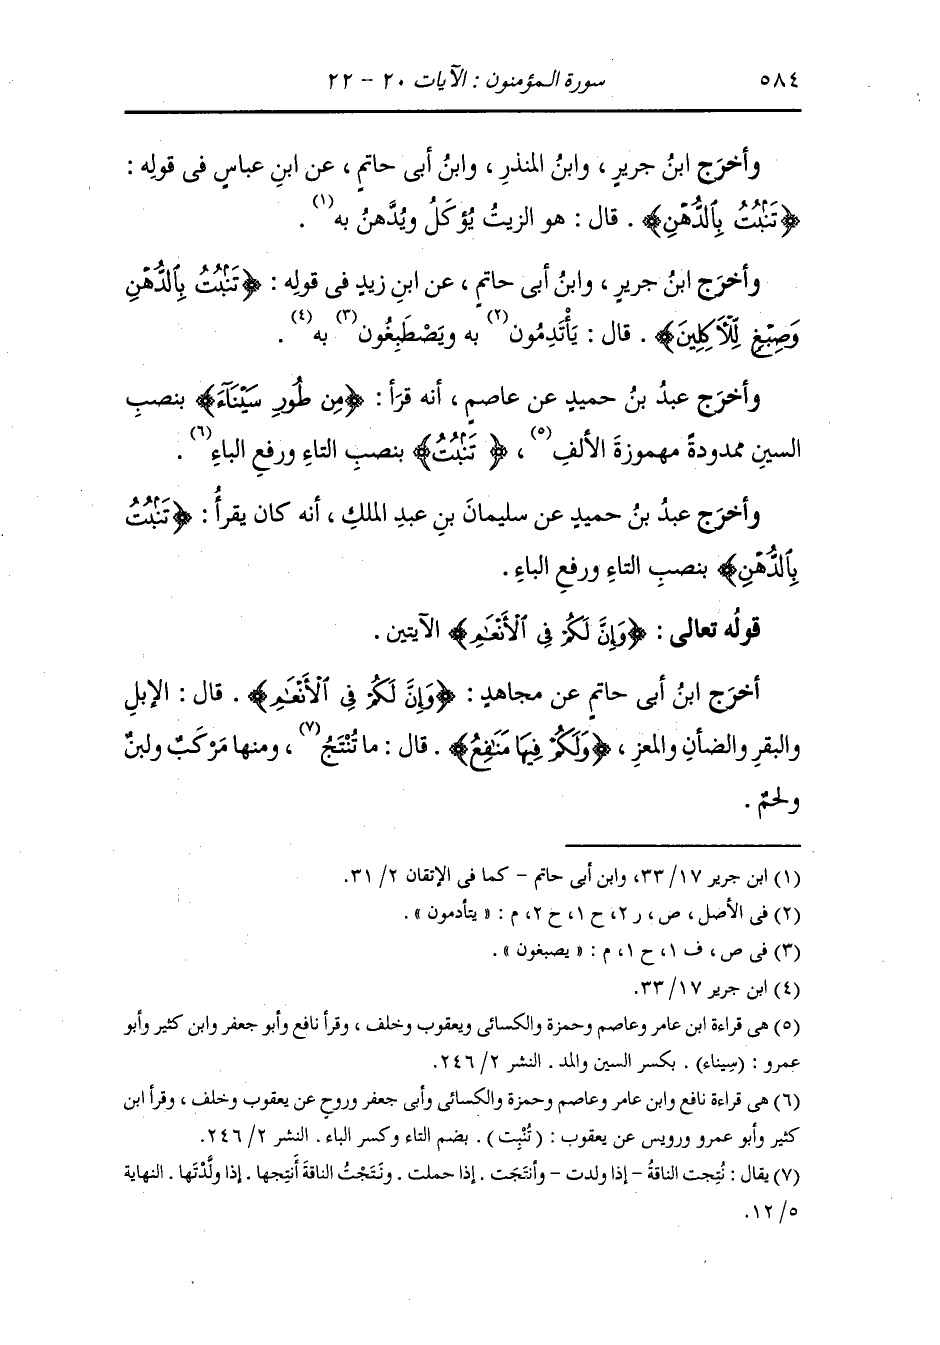 ٥٨٤ سورة المؤمنون : الآيات ٢٠ - ٢٢
وأخرَج ابنُ جريرٍ ، وابنُ المنذرِ ، وابنُ أبى حاتمٍ ، عن ابنِ عباسٍ فى قولِه :
﴿تَنۢبُتُ بِٱلدُّهْنِ﴾ . قال : هو الزيتُ يُؤكَلُ ويُدَّهنُ به(١) .
وأخرَج ابنُ جريرٍ ، وابنُ أبى حاتمٍ ، عن ابنِ زيدٍ فى قولِه : ﴿تَنۢبُتُ بِٱلدُّهْنِ
وَصِبْغٍ لِّلْآكِلِينَ﴾ . قال : يَأْتَدِمُون(٢) به ويَصْطَبِغُون(٣) به(٤) .
وأخرَج عبدُ بنُ حميدٍ عن عاصمٍ ، أنه قرَأ : ﴿مِن طُورِ سَيْنَآءَ﴾ بنصبِ
السينِ ممدودةً مهموزةَ الألفِ(٥) ، ﴿تَنۢبُتُ﴾ بنصبِ التاءِ ورفعِ الباءِ(٦) .
وأخرَج عبدُ بنُ حميدٍ عن سليمانَ بنِ عبدِ الملكِ ، أنه كان يقرأُ : ﴿تَنۢبُتُ
بِٱلدُّهْنِ﴾ بنصبِ التاءِ ورفعِ الباءِ .
قولُه تعالى : ﴿وَإِنَّ لَكُمْ فِى ٱلْأَنْعَٰمِ﴾ الآيتين .
أخرَج ابنُ أبى حاتمٍ عن مجاهدٍ : ﴿وَإِنَّ لَكُمْ فِى ٱلْأَنْعَٰمِ﴾ . قال : الإبلِ
والبقرِ والضأنِ والمعزِ ، ﴿وَلَكُمْ فِيهَا مَنَٰفِعُ﴾ . قال : ما تُنْتَجُ(٧) ، ومنها مَرْكَبٌ ولبنٌ
ولحمٌ .
(١) ابن جرير ١٧/ ٣٣، وابن أبى حاتم - كما فى الإتقان ٢/ ٣١.
(٢) فى الأصل ، ص ، ر ٢، ح ١، خ ٢، م : « يتأدمون » .
(٣) فى ص ، ف ١، ح ١، م : « يصبغون » .
(٤) ابن جرير ١٧/ ٣٣.
(٥) هى قراءة ابن عامر وعاصم وحمزة والكسائى ويعقوب وخلف ، وقرأ نافع وأبو جعفر وابن كثير وأبو
عمرو : (سِيناء) . بكسر السين والمد . النشر ٢/ ٢٤٦.
(٦) هى قراءة نافع وابن عامر وعاصم وحمزة والكسائى وأبى جعفر وروح عن يعقوب وخلف ، وقرأ ابن
كثير وأبو عمرو ورويس عن يعقوب : (تُنْبِت) . بضم التاء وكسر الباء . النشر ٢/ ٢٤٦.
(٧) يقال : نُتِجت الناقةُ - إذا ولدت - وأنتَجَت . إذا حملت . ونَتَجْتُ الناقةَ أَنتِجها . إذا ولَّدْتَها . النهاية
٥/ ١٢.